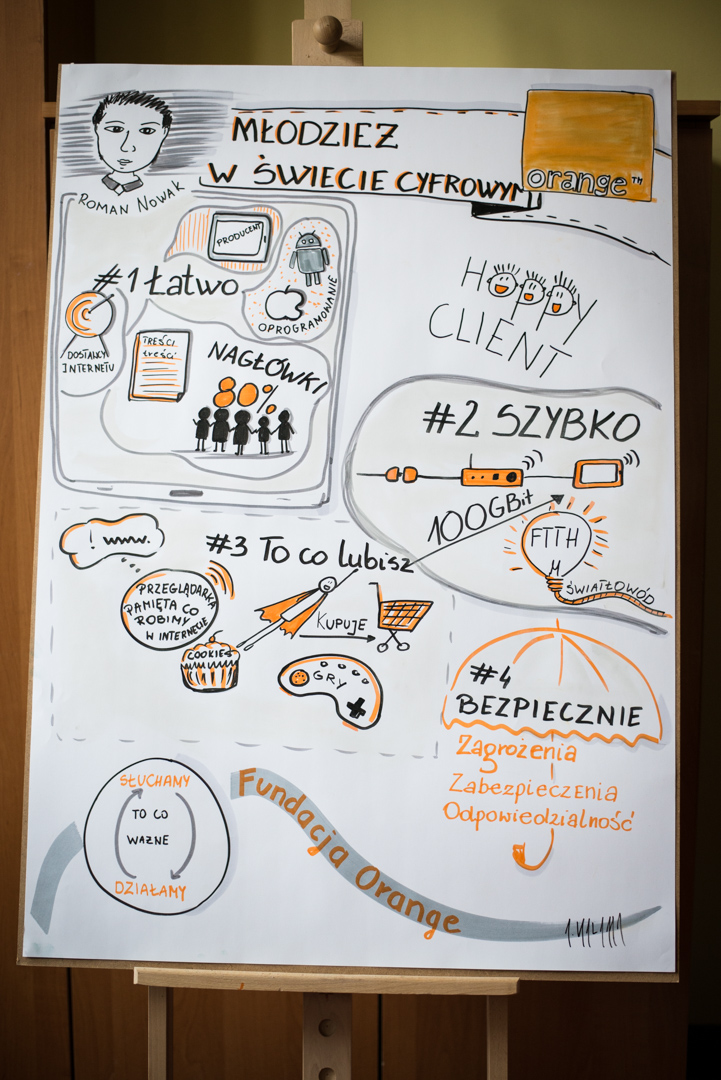 MŁODZIEŻ
W ŚWIECIE CYFROWYM
orange™
ROMAN NOWAK
#1 Łatwo
PRODUCENT
OPROGRAMOWANIE
DOSTAWCY
INTERNETU
TREŚCI
treści
NAGŁÓWKI
80%
HAPPY
CLIENT
#2 SZYBKO
100GBit
FTTH
ŚWIATŁOWÓD
#3 To co lubisz
! www.
PRZEGLĄDARKA
PAMIĘTA CO
ROBIMY
W INTERNECIE
COOKIES
KUPUJE
GRY
#4
BEZPIECZNIE
Zagrożenia
Zabezpieczenia
Odpowiedzialność
SŁUCHAMY
TO CO
WAŻNE
DZIAŁAMY
Fundacja Orange